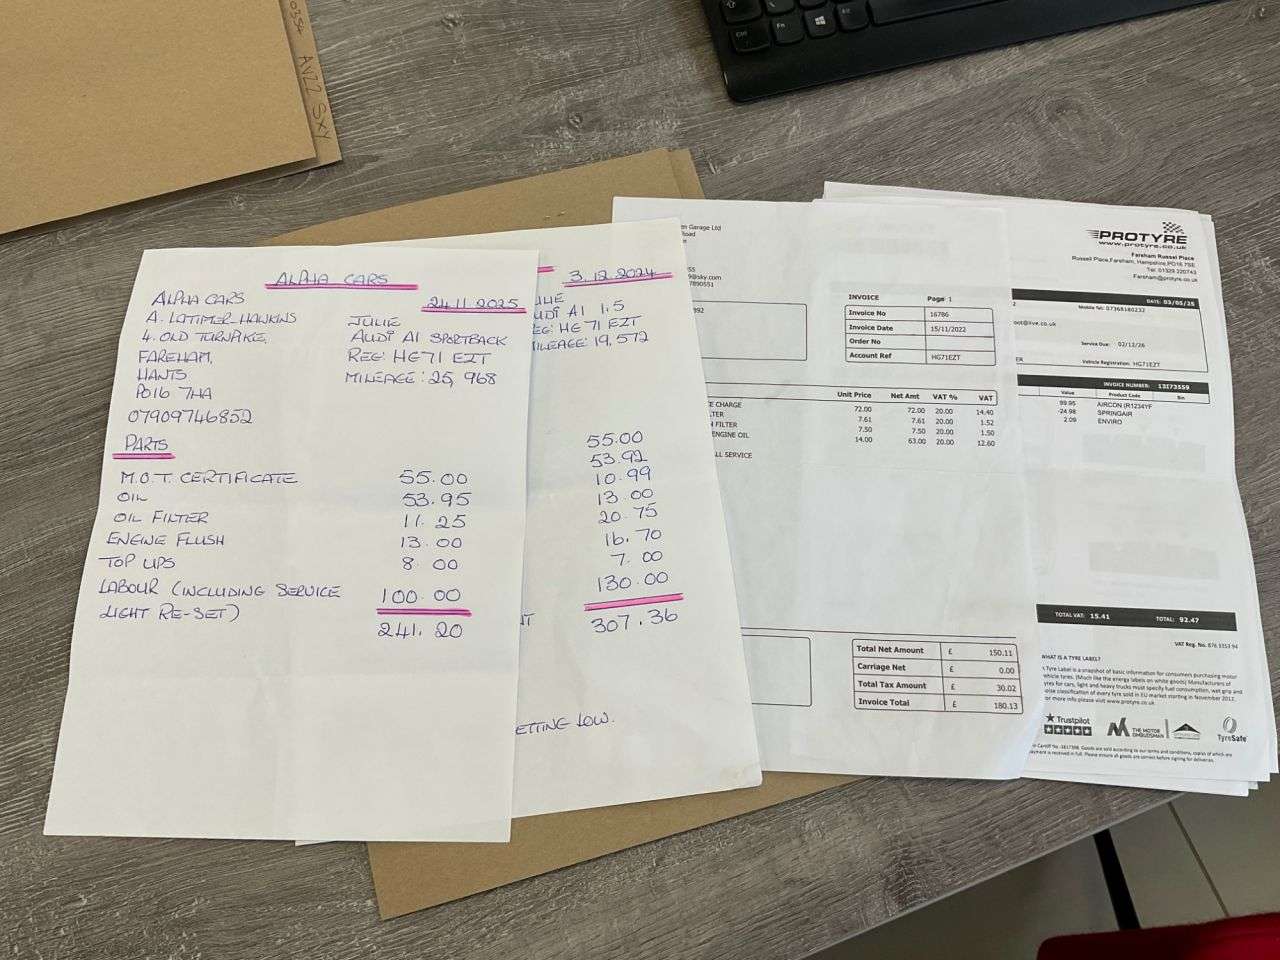 0354 AV22 SXY
Ctrl Fn Alt
ALPHA CARS
24.11.2025
ALPHA CARS
A. LATIMER-HAWKINS
4. OLD TURNPIKE,
FAREHAM,
HANTS
PO16 7HA
07909746852
JULIE
AUDI A1 SPORTBACK
REG: HG71 EZT
MILEAGE: 25,968
PARTS
M.O.T. CERTIFICATE 55.00
OIL 53.95
OIL FILTER 11.25
ENGINE FLUSH 13.00
TOP UPS 8.00
LABOUR (INCLUDING SERVICE 100.00
LIGHT RE-SET)
241.20
3.12.2024
ULIE
UDI A1 1.5
EG: HG 71 EZT
MILEAGE: 19,572
55.00
53.92
10.99
13.00
20.75
16.70
7.00
130.00
307.36
ETTING LOW.
en Garage Ltd
Road
55
9@sky.com
7890551
392
INVOICE Page 1
Invoice No 16786
Invoice Date 15/11/2022
Order No
Account Ref HG71EZT
Unit Price Net Amt VAT % VAT
CE CHARGE 72.00 72.00 20.00 14.40
LTER 7.61 7.61 20.00 1.52
N FILTER 7.50 7.50 20.00 1.50
ENGINE OIL 14.00 63.00 20.00 12.60
LL SERVICE
Total Net Amount £ 150.11
Carriage Net £ 0.00
Total Tax Amount £ 30.02
Invoice Total £ 180.13
PROTYRE
www.protyre.co.uk
Fareham Russel Place
Russell Place,Fareham, Hampshire,PO16 7SE
Tel: 01329 220743
Fareham@protyre.co.uk
DATE: 03/05/25
Mobile Tel: 07368180232
oot@live.co.uk
Service Due: 02/12/26
Vehicle Registration: HG71EZT
INVOICE NUMBER: 13173559
Value Product Code Bin
99.95 AIRCON (R1234YF
-24.98 SPRINGAIR
2.09 ENVIRO
TOTAL VAT: 15.41 TOTAL: 92.47
VAT Reg. No. 876 3353 94
WHAT IS A TYRE LABEL?
A Tyre Label is a snapshot of basic information for consumers purchasing motor
vehicle tyres. (Much like the energy labels on white goods) Manufacturers of
tyres for cars, light and heavy trucks must specify fuel consumption, wet grip and
noise classification of every tyre sold in EU market starting in November 2012.
or more info please visit www.protyre.co.uk
Trustpilot
THE MOTOR OMBUDSMAN
TyreSafe
Goods are sold according to our terms and conditions, copies of which are
payment is received in full. Please ensure all goods are correct before signing for deliveries.